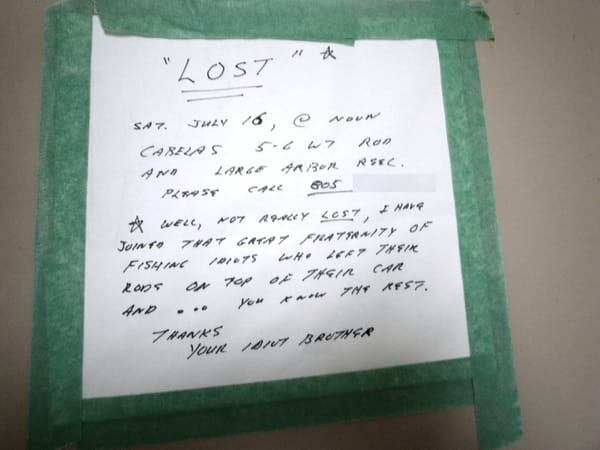 "LOST" ☆
SAT. JULY 16, @ NOUN
CABELAS 5-6 WT ROD
AND LARGE ARBOR REEL.
PLEASE CALL 805
☆ WELL, NOT REALLY LOST, I HAVE
JOINED THAT GREAT FRATERNITY OF
FISHING IDIOTS WHO LEFT THEIR
RODS ON TOP OF THEIR CAR
AND ... YOU KNOW THE REST.
THANKS
YOUR IDIOT BROTHER